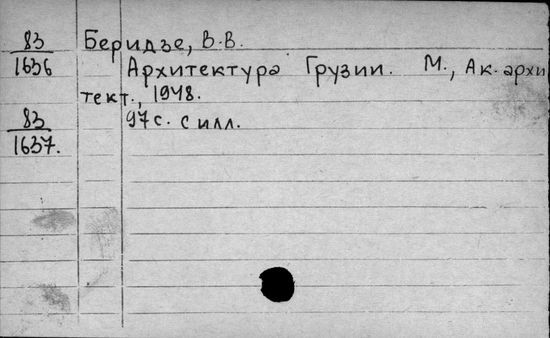 83 Беридзе, В.В.
1636 Архитектура Грузии. М., Ак. архи
тект., 1948.
83 97 с. с илл.
1637.